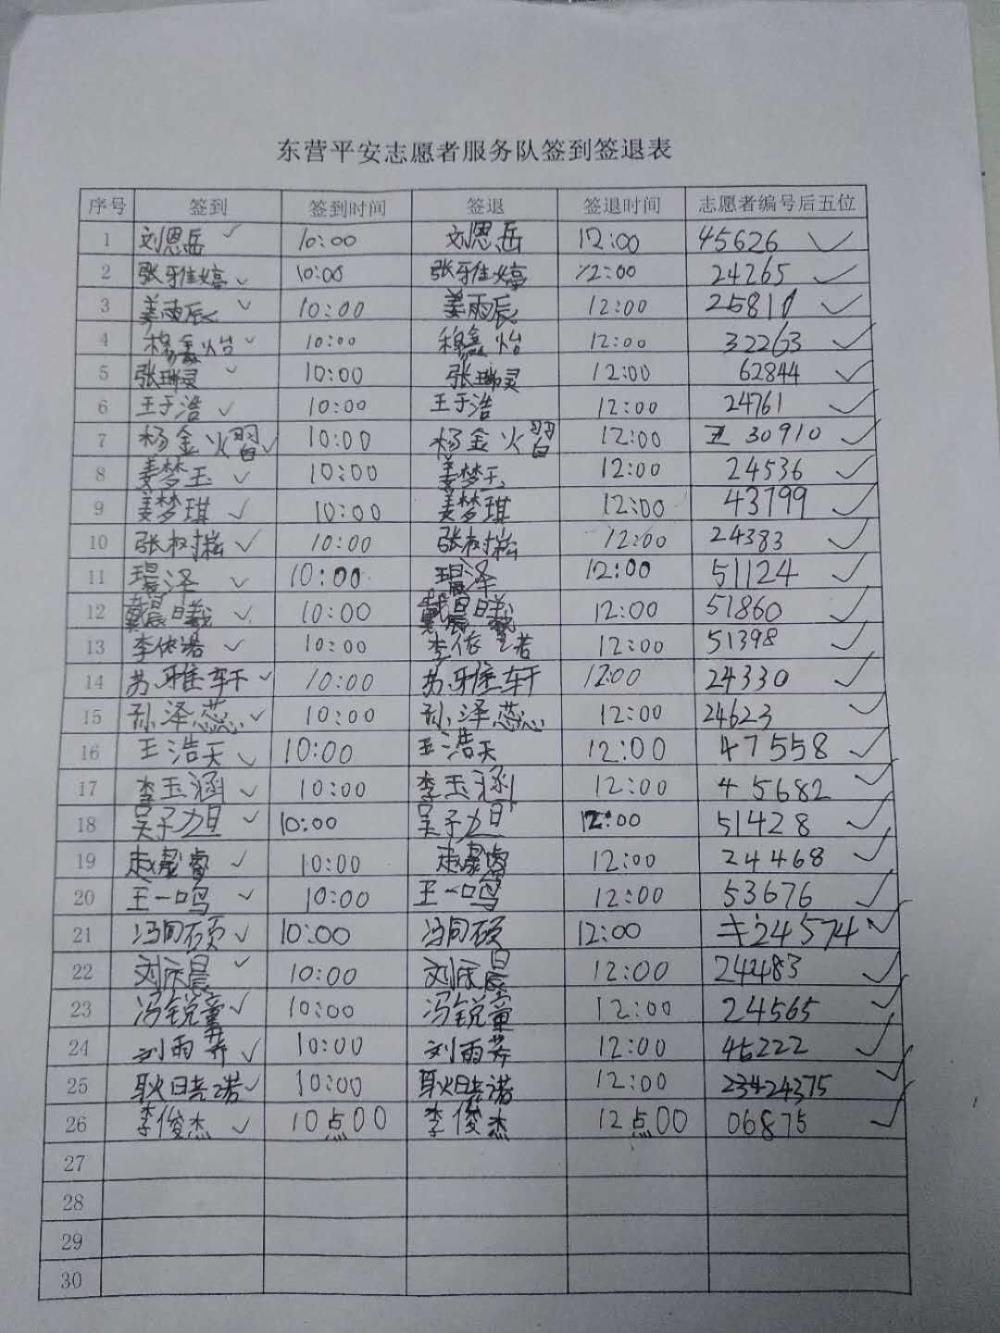 东营平安志愿者服务队签到签退表
序号 签到 签到时间 签退 签退时间 志愿者编号后五位
1 刘恩岳 ✓ 10:00 刘恩岳 12:00 45626 ✓
2 张雅婷 ✓ 10:00 张雅婷 12:00 24265 ✓
3 姜雨辰 ✓ 10:00 姜雨辰 12:00 25811 ✓
4 穆鑫怡 ✓ 10:00 穆鑫怡 12:00 32263 ✓
5 张瑞灵 ✓ 10:00 张瑞灵 12:00 62844 ✓
6 王于浩 ✓ 10:00 王于浩 12:00 24761 ✓
7 杨金熠 ✓ 10:00 杨金熠 12:00 30910 ✓
8 姜梦玉 ✓ 10:00 姜梦玉 12:00 24536 ✓
9 姜梦琪 ✓ 10:00 姜梦琪 12:00 43799 ✓
10 张树崧 ✓ 10:00 张树崧 12:00 24383 ✓
11 璟泽 ✓ 10:00 璟泽 12:00 51124 ✓
12 戴晨曦 ✓ 10:00 戴晨曦 12:00 51860 ✓
13 李依诺 ✓ 10:00 李依 12:00 51398 ✓
14 苏雅轩 ✓ 10:00 苏雅轩 12:00 24330 ✓
15 孙泽蕊 ✓ 10:00 孙泽蕊 12:00 24623 ✓
16 王浩天 ✓ 10:00 王浩天 12:00 47558 ✓
17 李玉涵 ✓ 10:00 李玉涵 12:00 45682 ✓
18 吴子旭 ✓ 10:00 吴子旭 12:00 51428 ✓
19 赵睿 ✓ 10:00 赵睿 12:00 24468 ✓
20 王一鸣 ✓ 10:00 王一鸣 12:00 53676 ✓
21 冯同硕 ✓ 10:00 冯同硕 12:00 24574 ✓
22 刘庆晨 ✓ 10:00 刘庆晨 12:00 24483 ✓
23 冯锐童 ✓ 10:00 冯锐童 12:00 24565 ✓
24 刘雨荞 ✓ 10:00 刘雨荞 12:00 45222 ✓
25 耿晧诺 ✓ 10:00 耿晧诺 12:00 23424375 ✓
26 李俊杰 ✓ 10点00 李俊杰 12点00 06875 ✓
27
28
29
30